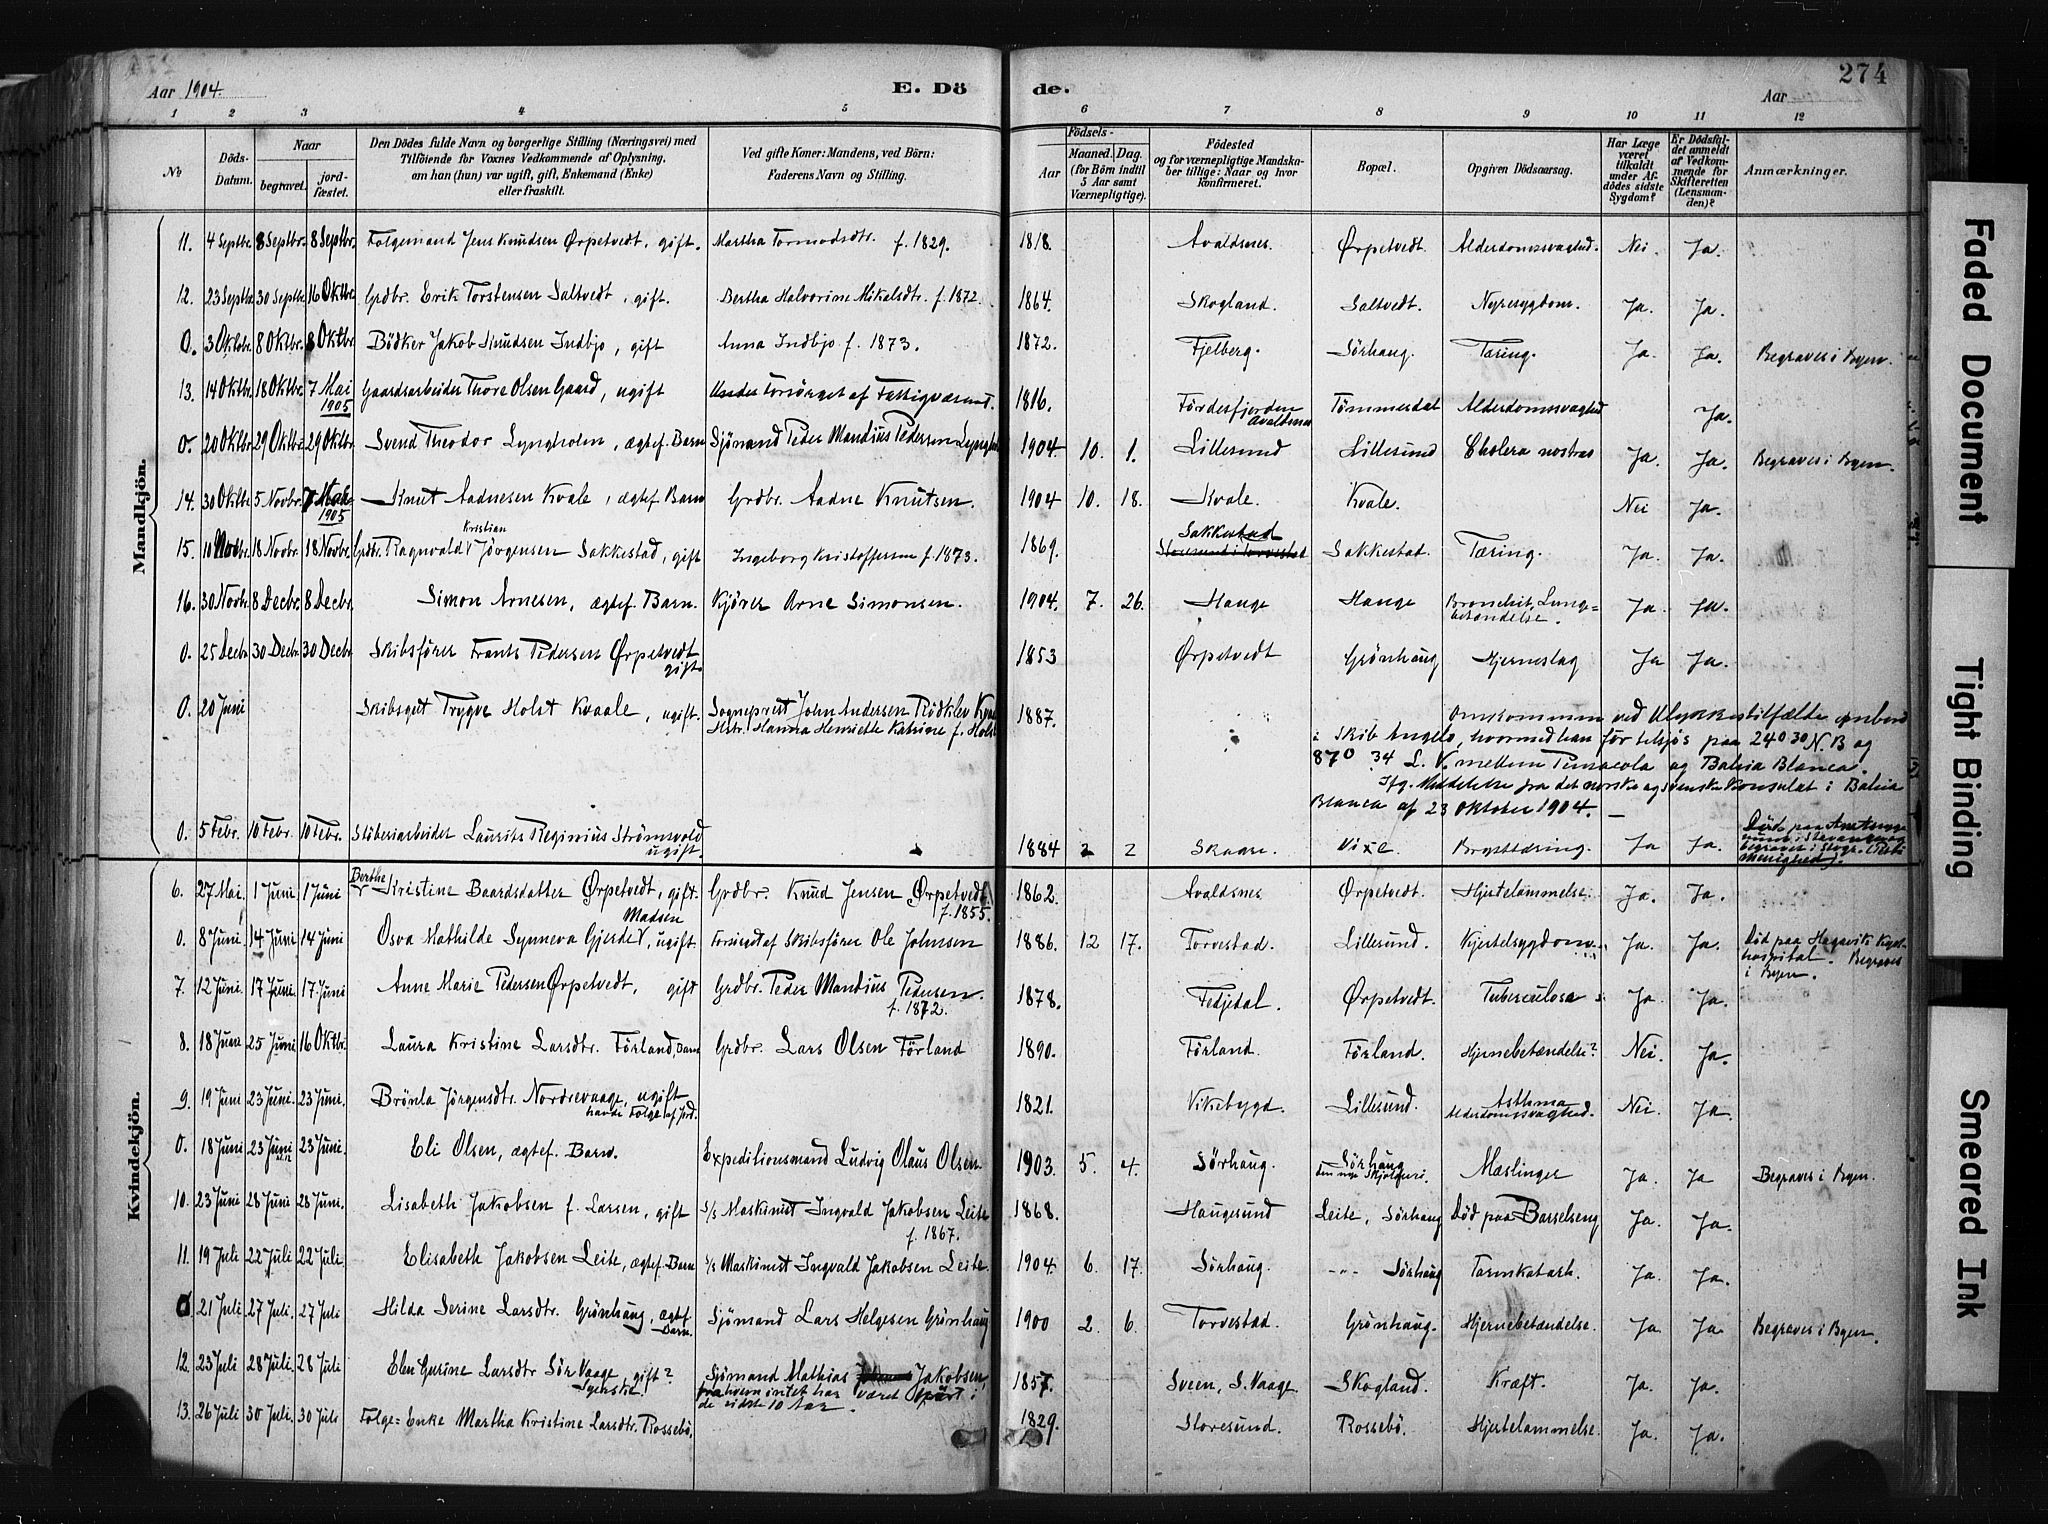 274
Aar 1904. E. Dö de. Aar
1 2 3 4 5 6 7 8 9 10 11 12
No Döds-Datum. Naar begravet. jordfæstet. Den Dödes fulde Navn og borgerlige Stilling (Næringsvei) med Tilföiende for Voxnes Vedkommende af Oplysning, om han (hun) var ugift, gift, Enkemand (Enke) eller fraskilt. Ved gifte Koner: Mandens, ved Börn: Faderens Navn og Stilling. Födsels- Aar Maaned. Dag. (for Börn indtil 5 Aar samt Værnepligtige). Födested og for værnepligtige Mandskaber tillige: Naar og hvor konfirmeret. Bopæl. Opgiven Dödsaarsag. Har Læge været tilkaldt under Afdödes sidste Sygdom? Er Dödsfaldet anmeldt af Vedkommende for Skifteretten (Lensmanden)? Anmærkninger.
Mandkjön.
11. 4 Septbr. 8 Septbr. 8 Septbr. Folgemand Jens Knudsen Ørpetvedt, gift. Martha Tormodsdtr. f. 1829. 1818. Avaldsnes. Ørpetvedt. Alderdomssvaghed. Nei. Ja.
12. 23 Septbr. 30 Septbr. 16 Oktbr. Grdbr. Erik Torstensen Saltvedt, gift. Bertha Halvorine Mikalsdtr. f. 1872. 1864. Skogland. Saltvedt. Nyresygdom. Ja. Ja.
0. 3 Oktobr. 8 Oktbr. 8 Oktbr. Bödker Jakob Knudsen Indbjo, gift Anna Indbjo f. 1873. 1872. Fjelberg. Sörhaug. Tæring. Ja. Ja. Begraves i Byen.
13. 14 Oktbr. 18 Oktbr. 7 Mai 1905 Gaardsarbeider Thore Olsen Gaard, ugift Forsörget af Fattigvæsenet. 1816. Fördesfjorden Avaldsnes Tömmerdal Alderdomssvaghed Ja.
0. 20 Oktbr. 29 Oktbr. 29 Oktbr. Svend Theodor Lyngholm, ægtef. Barn Sjömand Peder Mandius Pedersen Lyngholm 1904 10. 1. Lillesund Lillesund Cholera nostras Ja. Ja. Begraves i Byen.
14. 30 Oktbr. 5 Novbr. 7 Mai 1905 Knut Aadnesen Kvale, ægtef. Barn Grdbr. Aadne Knutsen. 1904 10. 18. Kvale. Kvale. Nei Ja.
15. 10 Novbr. 18 Novbr. 18 Novbr. Grdbr. Ragnvald Kristian Jörgensen Sakkestad, gift Ingeborg Kristoffersen f. 1873. 1869. Sakkestad Storesund i Torvestad Sakkestad. Tæring. Ja. Ja.
16. 30 Novbr. 8 Decbr. 8 Decbr. Simon Arnesen, ægtef. Barn. Kjörer Arne Simonsen. 1904. 7. 26. Hauge Hauge Bronchit, Lunge-betændelse. Ja. Ja.
0. 25 Decbr. 30 Decbr. 30 Decbr. Skibsförer Frants Pedersen Ørpetvedt gift. 1853 Ørpetvedt Grönhaug Hjerneslag Ja Ja.
0. 20 Juni Skibsgut Trygve Holst Kvaale, ugift. Sogneprest John Andersen Rödklev Kvaale Hstr. Hanna Henriette Katrine f. Holst 1887. Omkommen ved Ulykkestilfælde ombord
i Skib Angelo, hvormed han för tilsjös paa 24° 30 N. B og
87° 34 L. V. mellem Pensacola og Bahia Blanca.
Ifg. Meddelelse fra det norske og svenske Konsulat i Bahia
Blanca af 23 Oktober 1904.
0. 5 Febr. 10 Febr. 10 Febr. Stöberiarbeider Laurits Reginius Strömsvold ugift. 1884 2 2 Skaare. Vixe. Brysttæring. Ja Ja. Död paa Amtssyge
Kvindekjön.
6. 27 Mai. 1 Juni 1 Juni Berthe Kristine Baardsdatter Ørpetvedt, gift. Grdbr. Knud Jensen Ørpetvedt. f. 1855. 1862. Avaldsnes Ørpetvedt. Hjertelammelse. Ja. Ja.
0. 8 Juni 14 Juni 14 Juni Osva Mathilde Synneva Gjerde Madsen, ugift. Forsörget af Skibsförer Ole Johnsen 1886. 12 17. Torvestad. Lillesund. Kjertelsygdom. Ja. Ja. Död paa Hagevik Kysthospital. Begraves i Byen.
7. 12 Juni. 17 Juni. 17. Juni Anne Marie Pedersen Ørpetvedt, gift Grdbr. Peder Mandius Pedersen. f. 1872. 1878. Fedjedal. Ørpetvedt. Tuberculose Ja. Ja.
8. 18 Juni 25 Juni 16 Oktbr. Laura Kristine Larsdtr. Förland, Barn Grdbr. Lars Olsen Förland 1890. Förland. Förland. Hjernebetændelse? Nei. Ja.
9. 19 Juni 23 Juni. 23 Juni. Brönla Jörgensdtr. Nordrevaage, ugift havde Folge af Jord. 1821. Vikebygd. Lillesund. Asthma Alderdomssvaghed. Nei. Ja.
0. 18 Juni 23 Juni 23 Juni. Eli Olsen, ægtef. Barn. Expeditionsmand Ludvig Olaus Olsen 1903. 5. 4. Sörhaug. Sörhaug Mæslinger Ja. Ja Begraves i Byen.
10. 23 Juni 28 Juni 28 Juni. Lisabeth Jakobsen f. Larsen, gift s/s Maskinist Ingvald Jakobsen Leite f. 1867. 1868. Haugesund Leite, Sörhaug Död paa Barselseng Ja. Ja.
11. 19 Juli 22 Juli 22 Juli. Elisabeth Jakobsen Leite, ægtef. Barn s/s Maskinist Ingvald Jakobsen Leite. 1904. 6. 17. Sörhaug. -"- Sörhaug Tarmkatarh. Ja. Ja.
0 21 Juli 27 Juli. 27 Juli Hilda Serine Larsdtr. Grönhaug, ægtef. Barn. Sjömand Lars Helgesen Grönhaug 1900 2. 6. Torvestad. Grönhaug. Hjernebetændelse. Ja. Ja Begraves i Byen.
12. 23 Juli 28 Juli. 28 Juli Elen Gurine Larsdtr Sör Vaage, gift? Sjömand Mathias Jakobsen, fra hvem intet har været spurt i de sidste 10 Aar. 1857. Sveen, S. Vaage. Skogland. Kræft. Ja. Ja.
13. 26 Juli 30 Juli. 30 Juli Folge-Enke Martha Kristine Larsdtr. Rossebö. 1829. Storesund. Rossebö. Hjertelammelse. Ja. Ja.
Faded Document
Tight Binding
Smeared Ink